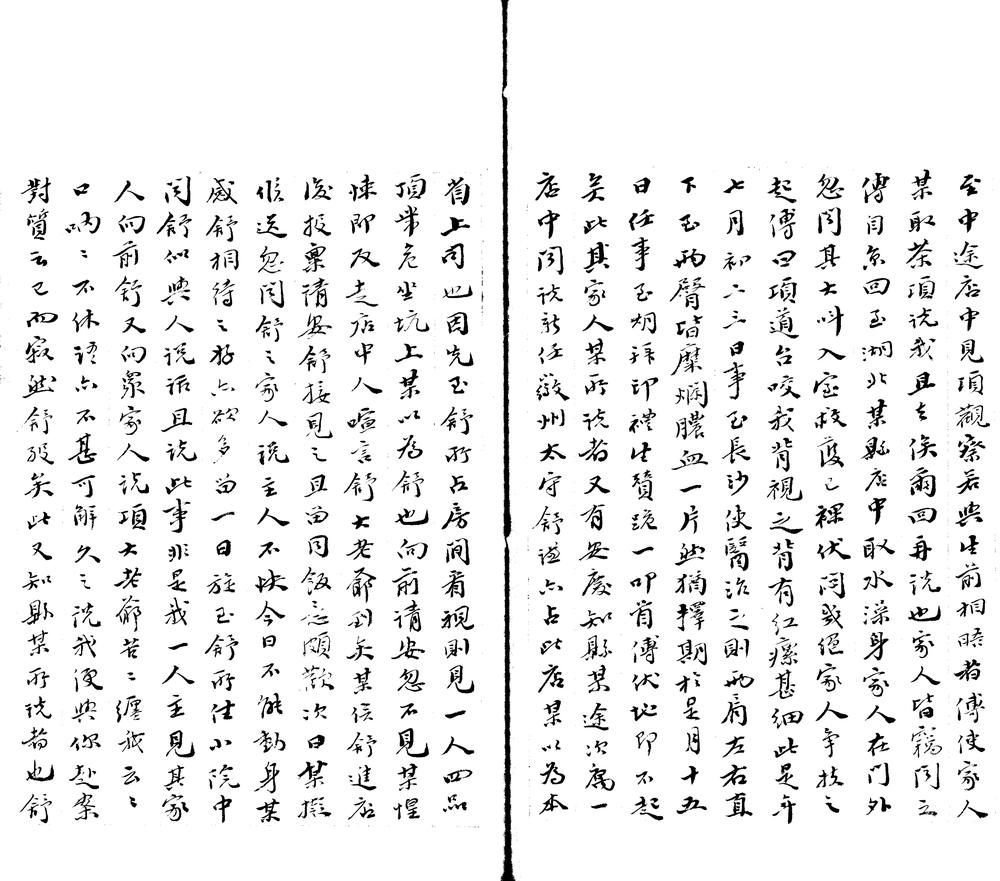 至中途店中見項觀察若與生前相晤者傅使家人
某取茶項說我且去俟爾回再說也家人皆竊聞之
傅自京回至湖北某縣店中取水澡身家人在門外
忽聞其大叫入室救護已裸伏悶幾絕家人争扶之
起傅曰項道台咬我背視之背有紅瘰甚細此是年
七月初二三日事至長沙使醫治之則兩肩左右直
下至兩臀皆糜爛膿血一片然猶擇期於是月十五
日任事至期拜印禮生贊跪一叩首傅伏地即不起
矣此其家人某所說者又有安慶知縣某途次寓一
店中聞說新任徽州太守舒謐亦占此店某以為本
省上司也因先至舒所占房間看視則見一人四品
頂帶危坐炕上某以為舒也向前請安忽不見某惶
悚即反走店中人喧言舒大老爺到矣某俟舒進店
後投稟請安舒接見之且留同飯意頗歡次日某擬
候送忽聞舒之家人說主人不快今日不能動身某
感舒相待之好亦欲多留一日旋至舒所住小院中
聞舒似與人說話且說此事非是我一人主見其家
人向前舒又向眾家人說項大老爺苦二纏我云二
口喃二不休語亦不甚可解久之說我便與你赴案
對質云已而寂然舒歿矣此又知縣某所說者也舒